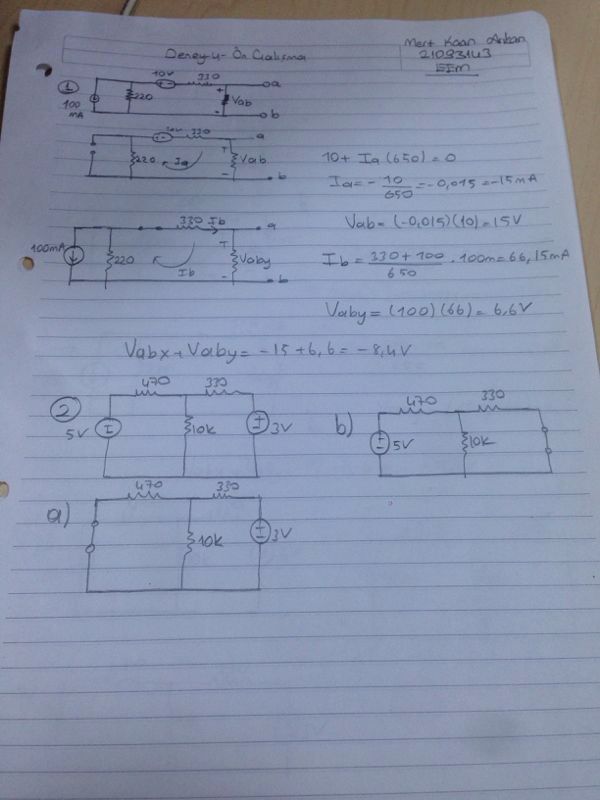 Deney-4- Ön Çalışma
Mert Kaan Arıkan
21093143
EEM
1
10V 330 a
100 mA 220 + Vab - b
330 a
220 Ia + Vab - b
10 + Ia (650) = 0
Ia = - 10/650 = -0,015 = -15mA
Vab = (-0,015)(10) = 15V
330 Ib a
100mA 220 Ib + Vaby - b
Ib = 330 + 100 / 650 . 100m = 66,15mA
Vaby = (100)(66) = 6,6V
Vabx + Vaby = -15 + 6,6 = -8,4V
2
470 330
5V I 10k 3V
b)
470 330
5V 10k
a)
470 330
10k 3V